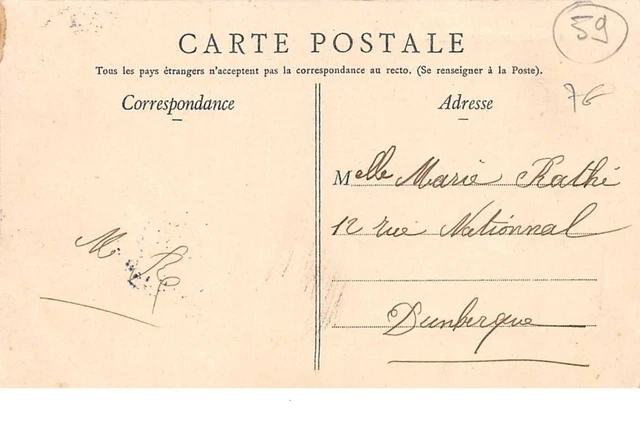 59
CARTE POSTALE
Tous les pays étrangers n'acceptent pas la correspondance au recto. (Se renseigner à la Poste).
Correspondance
Adresse
Melle Marie Rathé
12 rue Nationnal
M R
Dunkerque